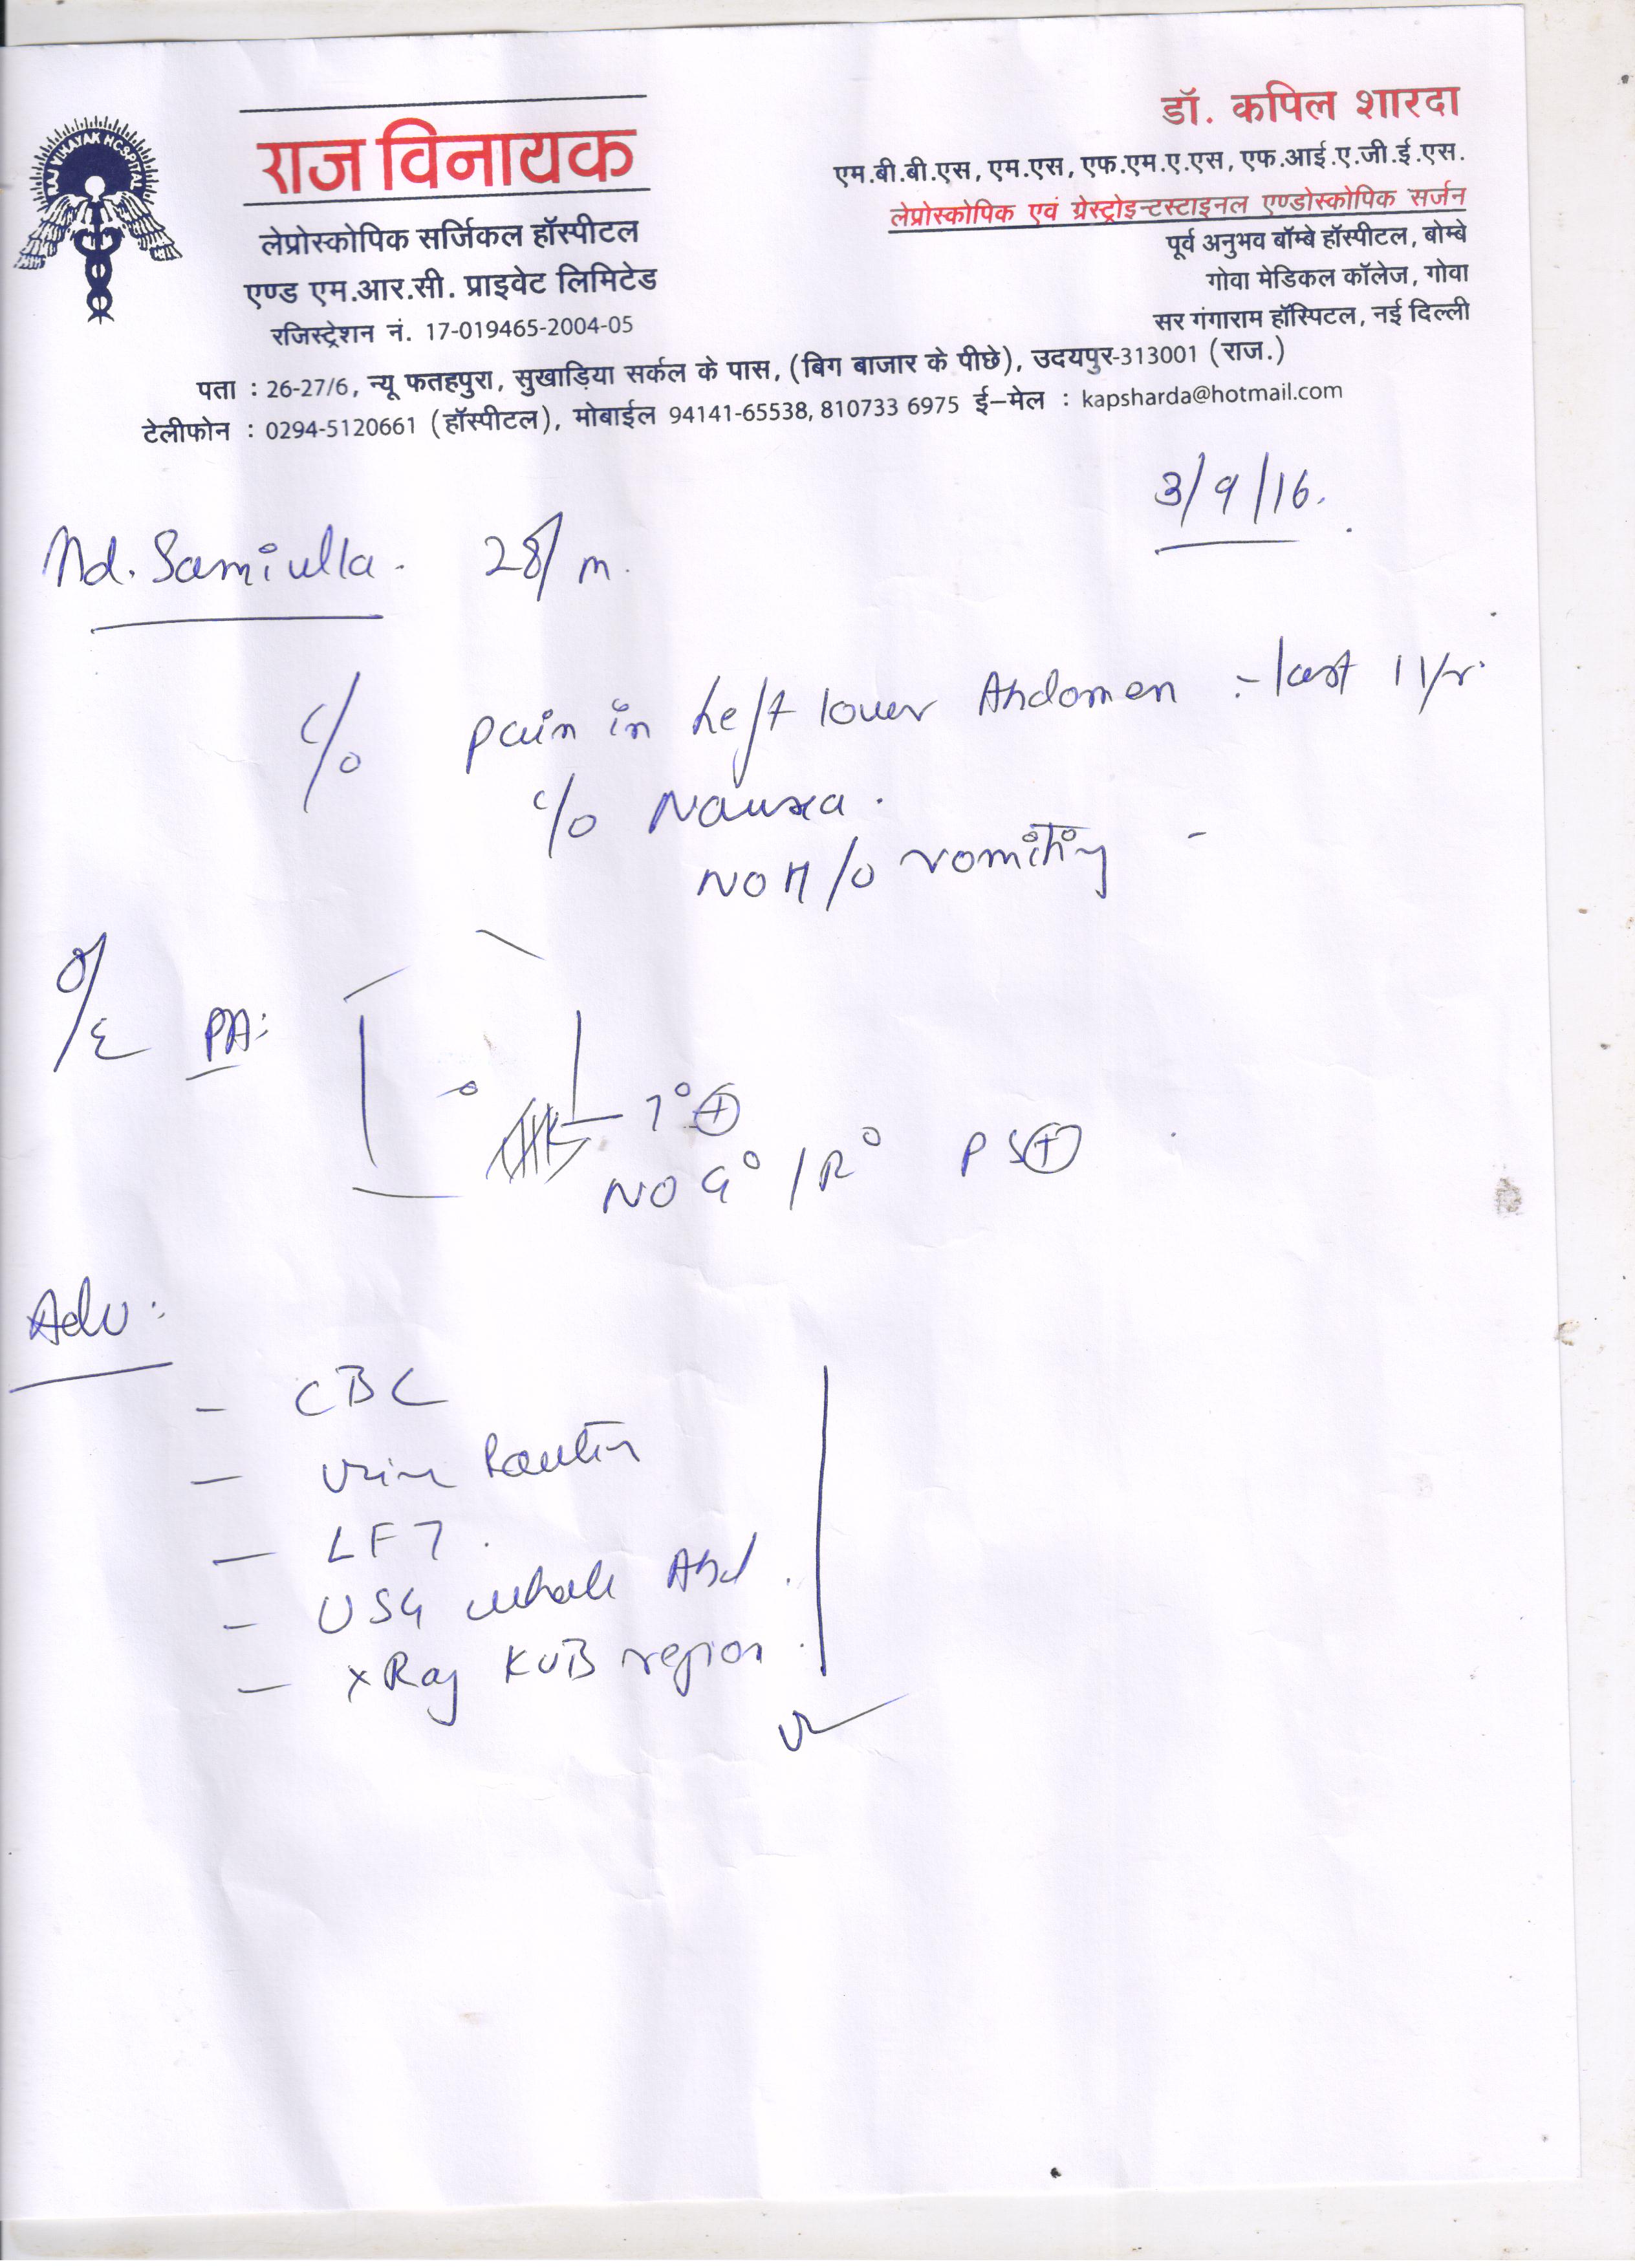 RAJ VINAYAK HOSPITAL
राज विनायक
लेप्रोस्कोपिक सर्जिकल हॉस्पीटल
एण्ड एम.आर.सी. प्राइवेट लिमिटेड
रजिस्ट्रेशन नं. 17-019465-2004-05
डॉ. कपिल शारदा
एम.बी.बी.एस, एम.एस, एफ.एम.ए.एस, एफ.आई.ए.जी.ई.एस.
लेप्रोस्कोपिक एवं ग्रेस्ट्रोइन्टस्टाइनल एण्डोस्कोपिक सर्जन
पूर्व अनुभव बॉम्बे हॉस्पीटल, बोम्बे
गोवा मेडिकल कॉलेज, गोवा
सर गंगाराम हॉस्पिटल, नई दिल्ली
पता : 26-27/6, न्यू फतहपुरा, सुखाड़िया सर्कल के पास, (बिग बाजार के पीछे), उदयपुर-313001 (राज.)
टेलीफोन : 0294-5120661 (हॉस्पीटल), मोबाईल 94141-65538, 810733 6975 ई-मेल : kapsharda@hotmail.com
3/9/16.
Md. Samiulla. 28/m.
c/o pain in Left lower Abdomen :- last 1 yr.
c/o Nausea.
NO H/O vomiting -
O/E PA:
T° ⊕
NO G° / R° PS ⊕
Adv:
- CBC
- Urine Routin
- LFT.
- USG whole Abd.
- xRay KUB region.